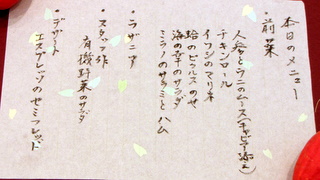 本日のメニュー
・前菜
人参とウニのムース(キャビア添え)
チキンロール
イワシのマリネ
蛸のピクルスのせ
海の幸のサラダ
ミラノのサラミとハム
・ラザニア
・スタッフ作
有機野菜のサラダ
・デザート
エスプレッソのセミフレッド